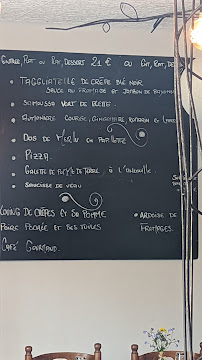 Entrée, Plat ou Plat, Dessert 21 € ou Ent, Plat, De
• Taggliatelle de crêpe blé noir
Sauce au fromage et jambon de Bayonne
• Samoussa vert de blette.
• Autonnaire courge, gingembre, romarin et
• Dos de Merlu en papillote
• Pizza.
• Galette de pomme de terre à l'andouille
• Saucisse de veau
de crêpes et sa pomme
Poire pochée et ses tuiles
Café Gourmand.
• Ardoise de
fromages.